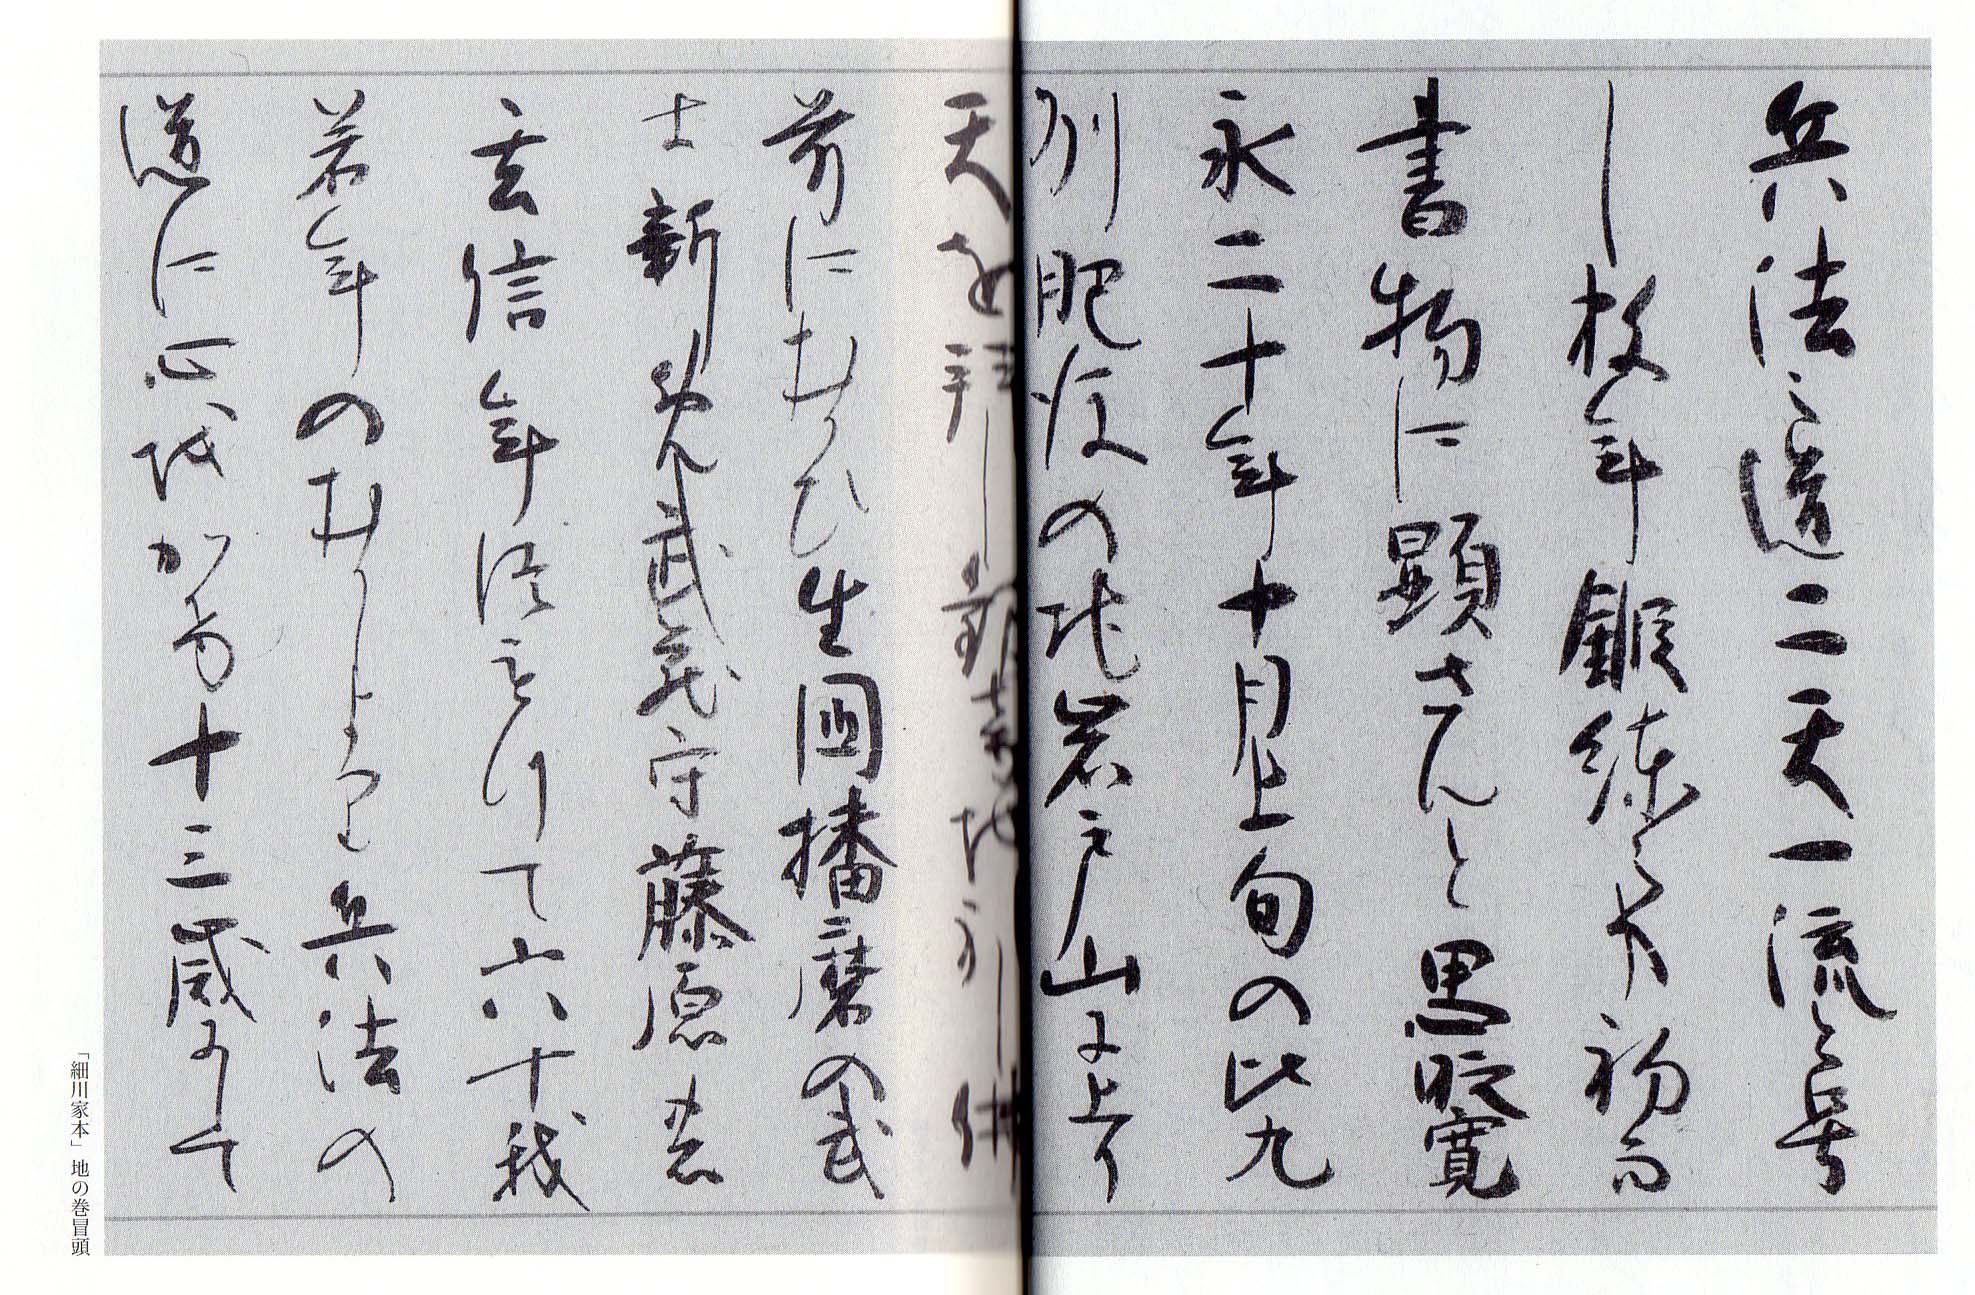 兵法之道二天一流と号
し数年鍛練之事初而
書物に顕さんと思時寛
永二十年十月上旬の比九
州肥後の地岩戸山に上り
天を拝し観音を礼し佛
前にむかひ生國播磨の武
士新免武蔵守藤原の
玄信年つもりて六十我
若年のむかしより兵法の
道に心をかけ十三歳にして
「細川家本」地の巻冒頭